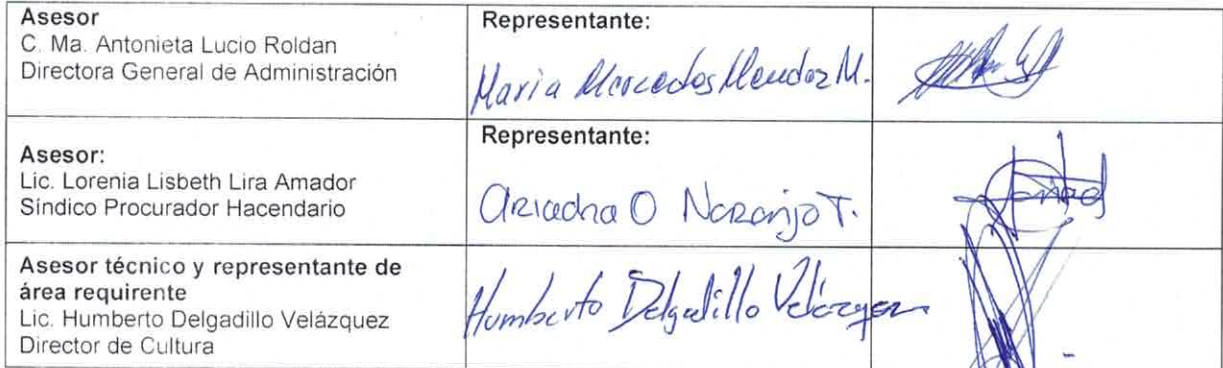 Asesor
C. Ma. Antonieta Lucio Roldan
Directora General de Administración
Representante:
Maria Mercedes Mendoz M.
Asesor:
Lic. Lorenia Lisbeth Lira Amador
Síndico Procurador Hacendario
Representante:
Ariadna O Naranjo T.
Asesor técnico y representante de
área requirente
Lic. Humberto Delgadillo Velázquez
Director de Cultura
Humberto Delgadillo Velázquez